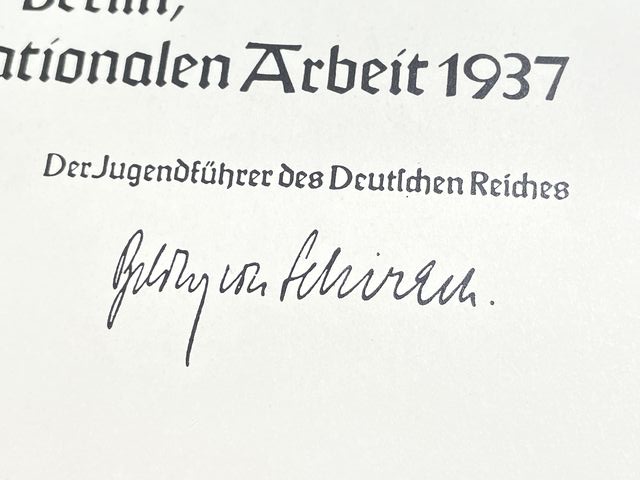 Berlin,
ationalen Arbeit 1937
Der Jugendführer des Deutſchen Reiches
Baldur von Schirach.